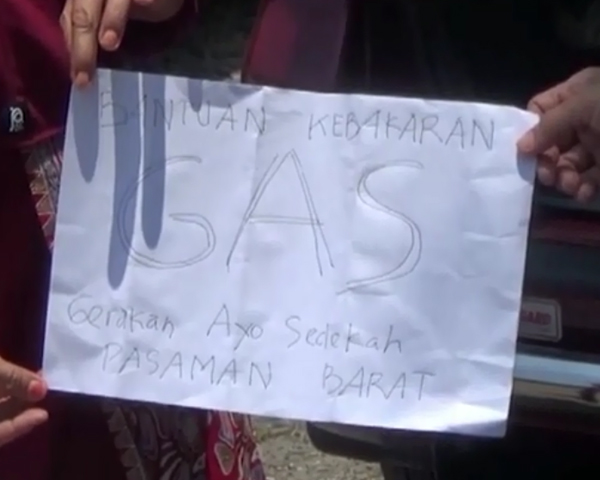 BANTUAN KEBAKARAN
GAS
Gerakan Ayo Sedekah
PASAMAN BARAT